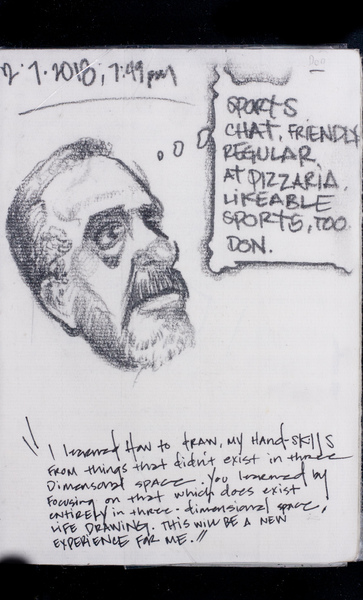 2.7.2010, 7:49pm
200
SPORTS
CHAT, FRIENDLY
REGULAR,
AT PIZZARIA.
LIKEABLE
SPORTS, TOO
DON.
"I learned How to draw, my Hand-SKILLS
FROM things that didn't exist in three
Dimensonal space. You learned by
Focusing on that which does exist
entirely in three-dimensional space,
LIFE DRAWING. THIS WILL BE A NEW
EXPERIENCE FOR ME."